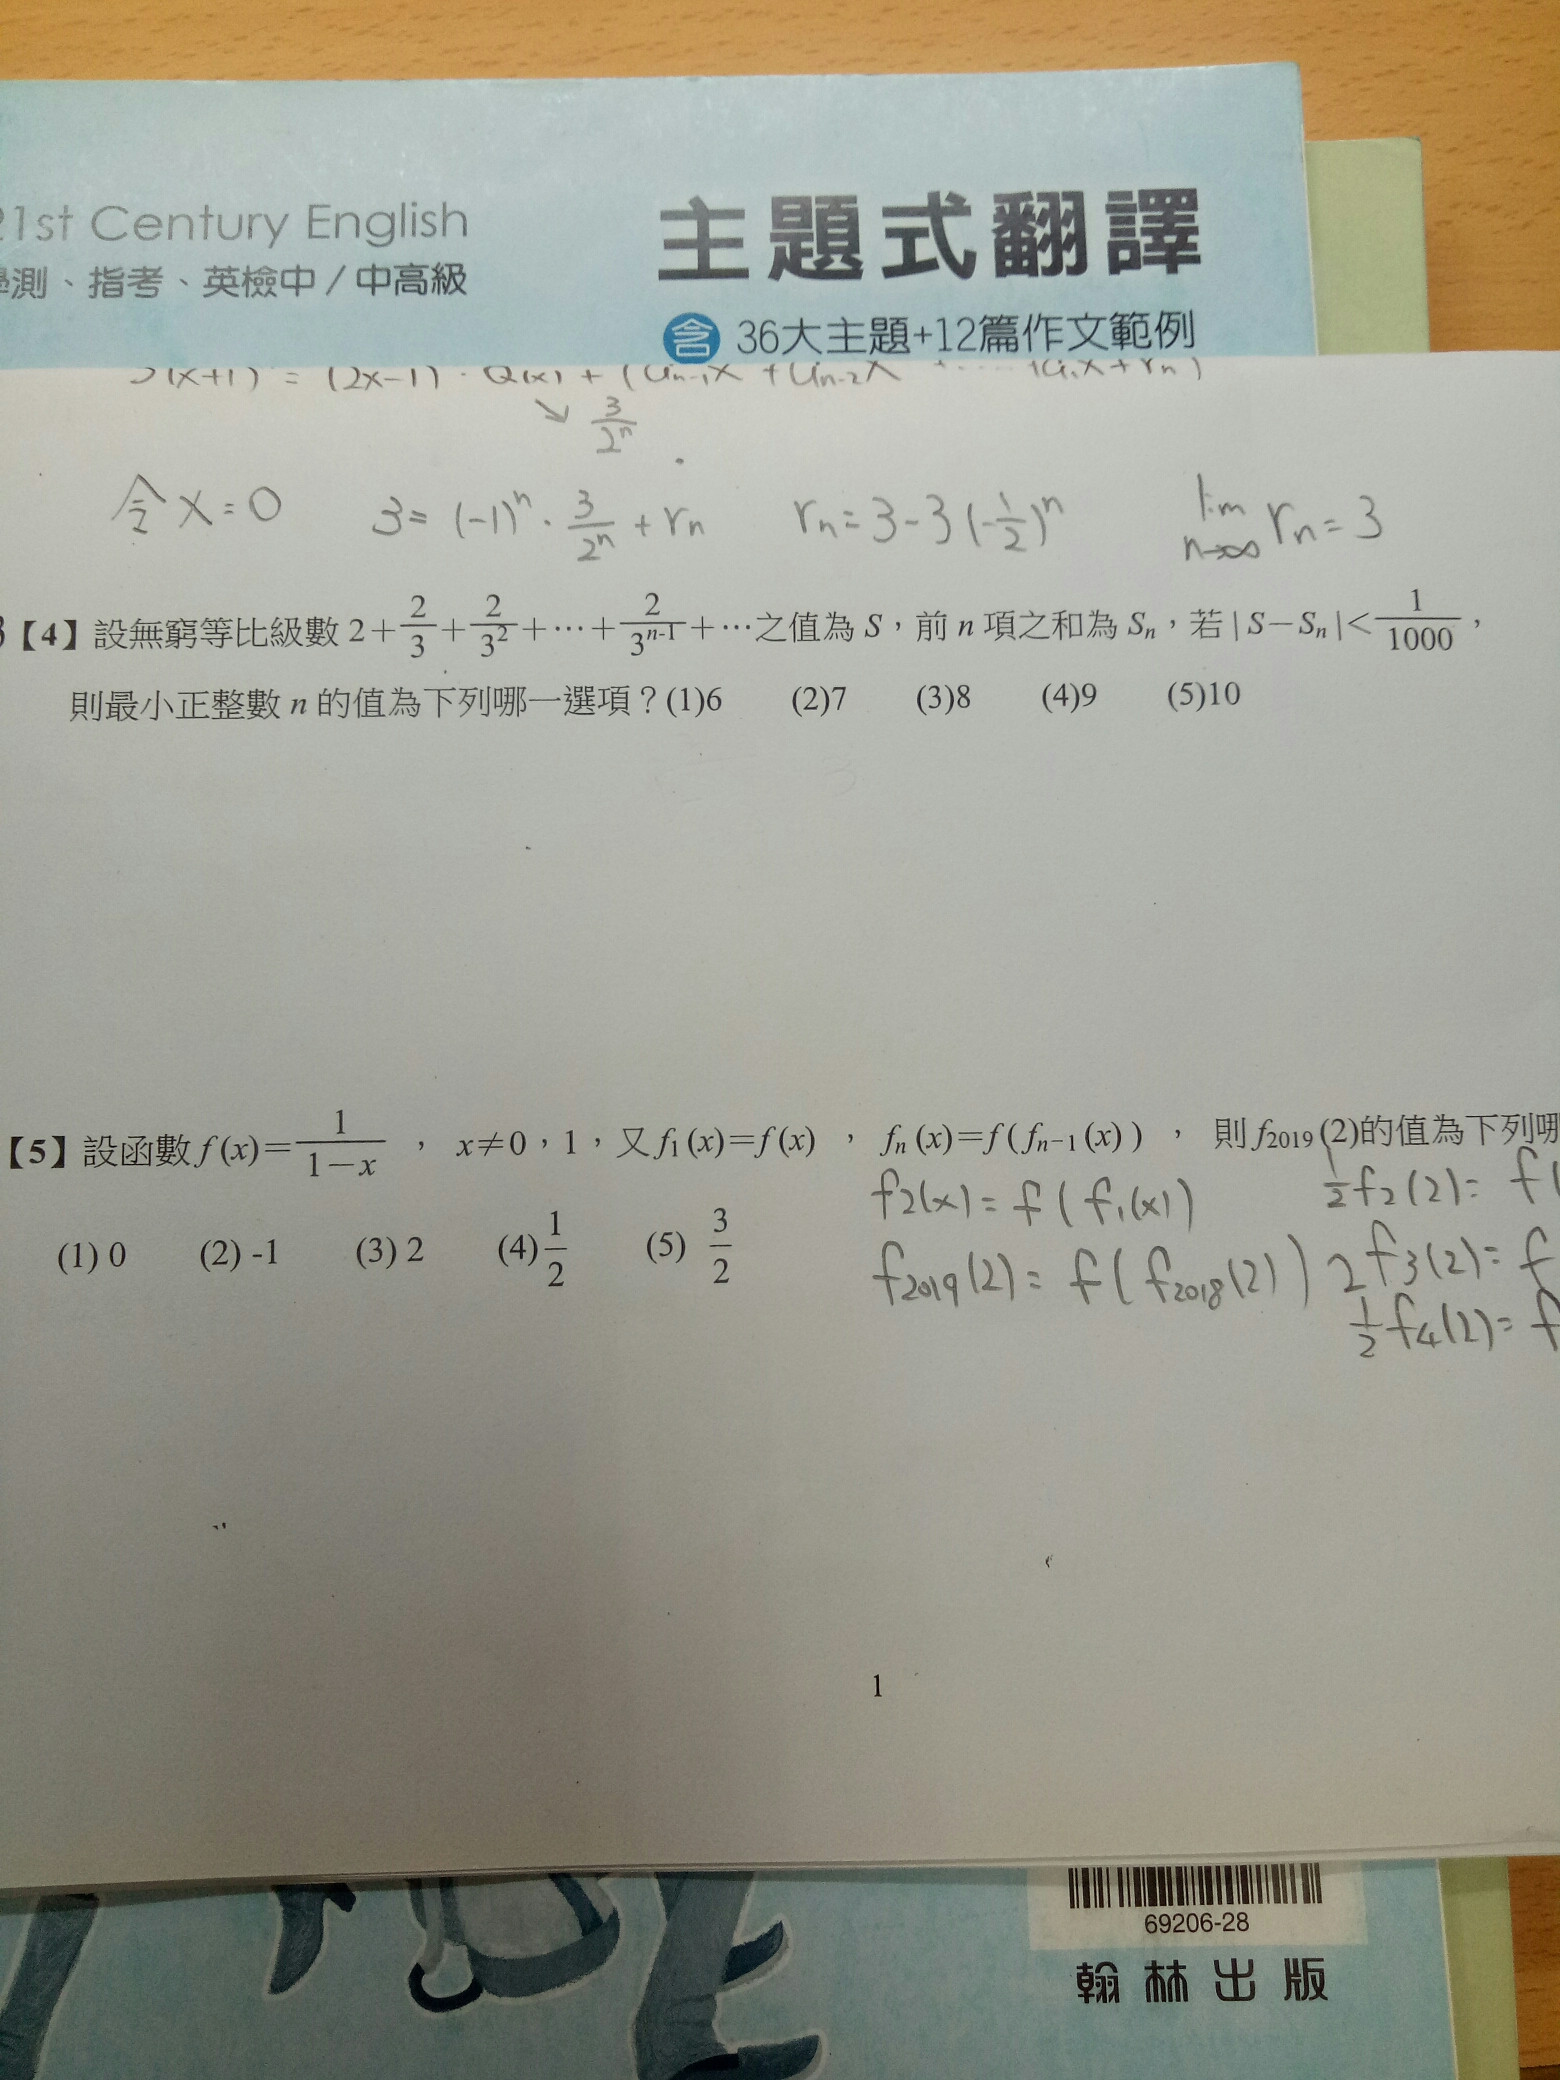 21st Century English
學測、指考、英檢中/中高級
主題式翻譯
含 36大主題+12篇作文範例
(x+1) = (2x-1)·Q(x)+(
↘ 3/2ⁿ
令 x=0 3=(-1)ⁿ·3/2ⁿ+rₙ rₙ=3-3(-1/2)ⁿ lim n→∞ rₙ=3
【4】設無窮等比級數 2+2/3+2/3²+⋯+2/3ⁿ⁻¹+⋯之值為 S,前 n 項之和為 Sₙ,若|S-Sₙ|<1/1000,
則最小正整數 n 的值為下列哪一選項?(1)6 (2)7 (3)8 (4)9 (5)10
【5】設函數 f(x)=1/(1-x), x≠0,1,又 f₁(x)=f(x), fₙ(x)=f(fₙ₋₁(x)), 則 f₂₀₁₉(2)的值為下列哪
f₂(x)=f(f₁(x)) 1/2 f₂(2)=f(
(1) 0 (2) -1 (3) 2 (4) 1/2 (5) 3/2
f₂₀₁₉(2)=f(f₂₀₁₈(2)) 2 f₃(2)=f
1/2 f₄(2)=f
1
69206-28
翰林出版